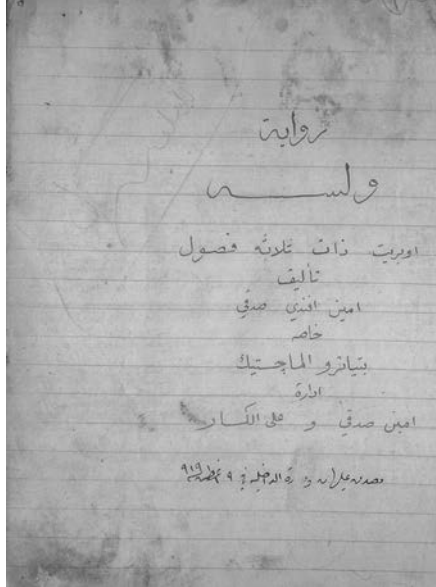 رواية
ولسه
اوبريت ذات ثلاثه فصول
تأليف
امين افندي صدقي
خاصه
بتياترو الماجستيك
ادارة
امين صدقي و على الكسار
الداخليه في ٩